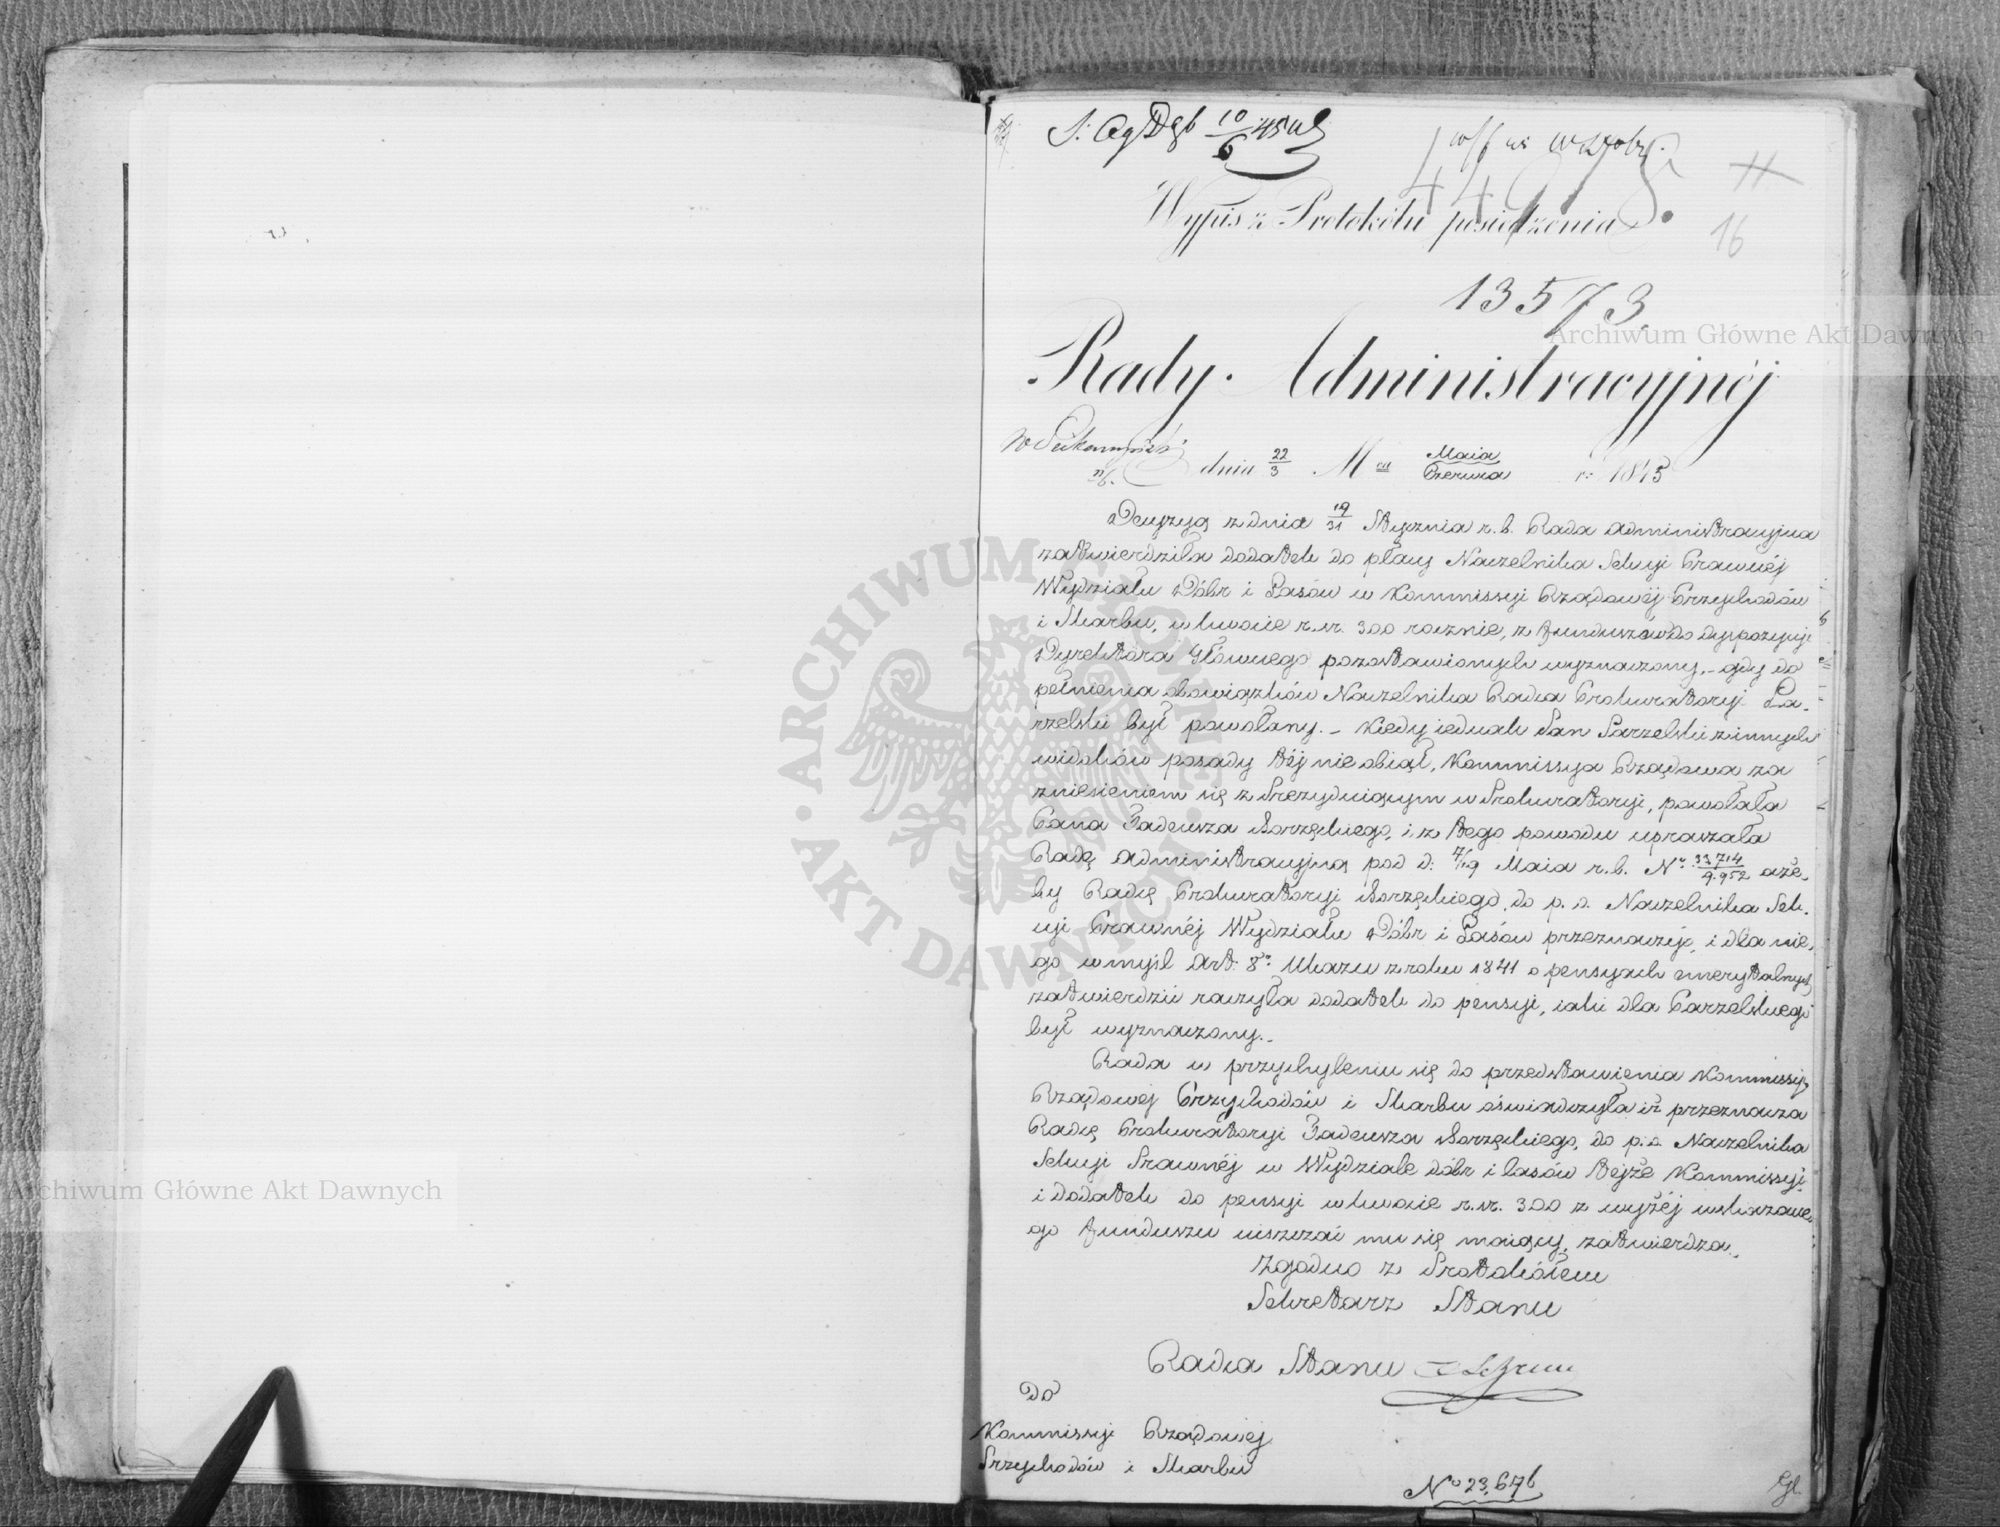 16
Wypis z Protokółu posiedzenia
13573.
Rady Administracyjnéj
dnia 22/3 Mca Maia/Czerwca r: 1845
Decyzyą z dnia 19/31 Stycznia r. b. Rada Administracyjna
zatwierdziła dodatek do płacy Naczelnika Sekcyi Prawnéj
Wydziału Dóbr i Lasów w Kommissyi Rządowéj Przychodów
i Skarbu, w kwocie r. sr. 300 rocznie, z funduszów do dyspozycyi
Dyrektora Głównego pozostawionych wyznaczony. – gdy do
pełnienia obowiązków Naczelnika Radca Prokuratoryi Pa-
rzelski był powołany. – Kiedy iednak Pan Parzelski z innych
widoków posady téj nie obiął, Kommissya Rządowa za
zniesieniem się z Prezyduiącym w Prokuratoryi, powołała
Pana Tadeusza Borzęckiego, i z tego powodu upraszała
Radę Administracyjną pod d: 7/19 Maia r. b. No 33714/9.952 aże-
by Radcę Prokuratoryi Borzęckiego, do p. o. Naczelnika Sek-
cyi Prawnéj Wydziału Dóbr i Lasów przeznaczyć, i dla nie-
go w myśl Art: 8o Ukazu z roku 1841 o pensyach emerytalnych,
zatwierdzić raczyła dodatek do pensyi, iaki dla Parzelskiego
był wyznaczony. –
Rada w przychyleniu się do przedstawienia Kommissyi
Rządowej Przychodów i Skarbu oświadczyła iż przeznacza
Radcę Prokuratoryi Tadeusza Borzęckiego, do p. o. Naczelnika
Sekcyi Prawnéj w Wydziale dóbr i lasów tejże Kommissyi,
i dodatek do pensyi w kwocie r. sr. 300 z wyżéj wskazane-
go funduszu uiszczać mu się maiący, zatwierdza. –
Zgodno z Protokółem
Sekretarz Stanu
Radca Stanu
Do
Kommissyi Rządowéj
Przychodów i Skarbu
No 23,676
Gł.
Archiwum Główne Akt Dawnych
Archiwum Główne Akt Dawnych
ARCHIWUM GŁÓWNE AKT DAWNYCH